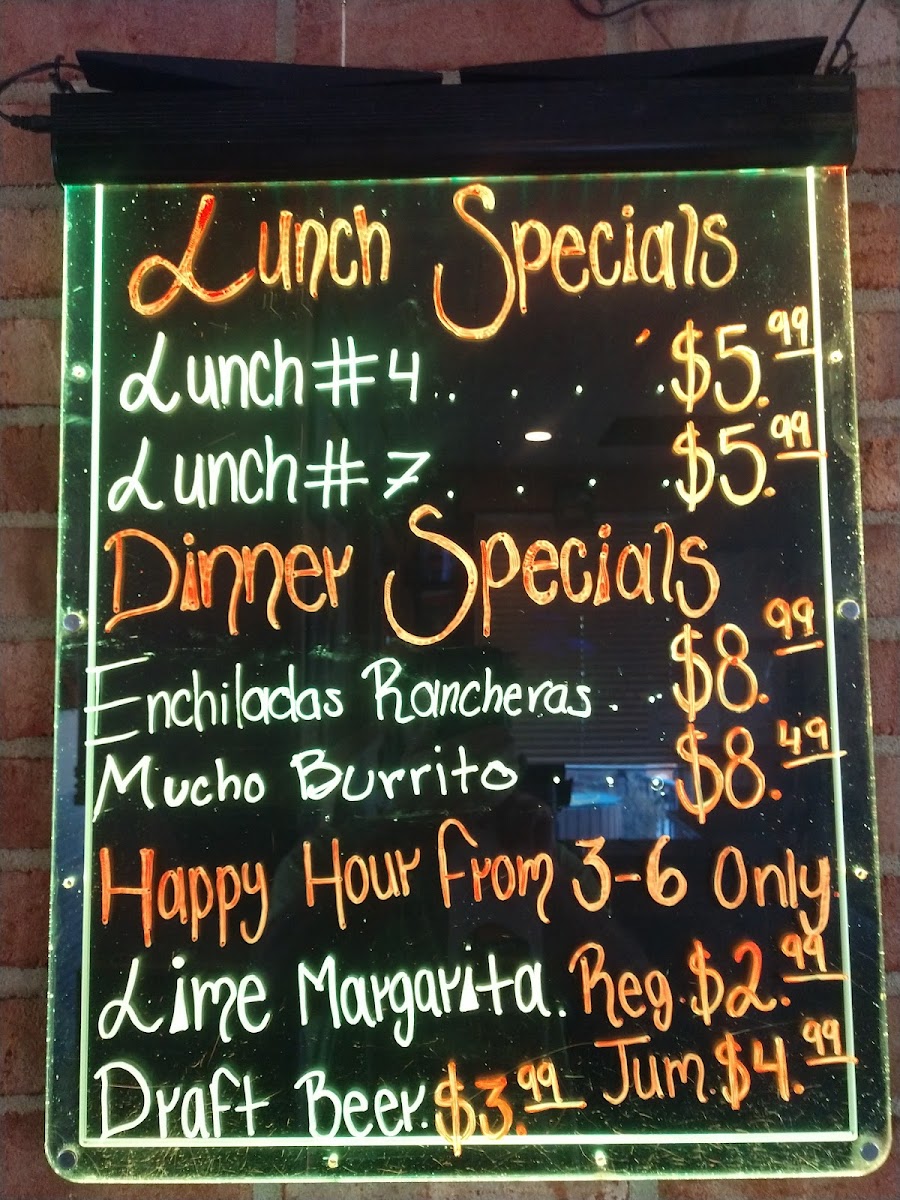 Lunch Specials
Lunch #4.. . . . $5.99
Lunch #7 . . . . $5.99
Dinner Specials
Enchiladas Rancheras. . . $8.99
Mucho Burrito . . . $8.49
Happy Hour from 3-6 Only
Lime Margarita. Reg. $2.99
Jum. $4.99
Draft Beer. $3.99